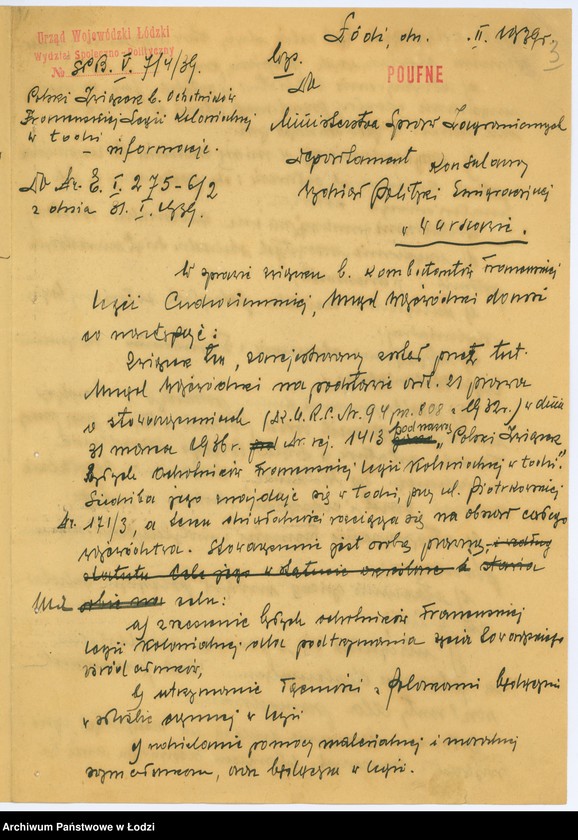 Urząd Wojewódzki Łódzki
Wydział Społeczno-Polityczny
№ SPB. V. 7/4/39.
Łódź, dn. .II. 1939 r.
3
POUFNE
Polski Związek b. Ochotników
Francuskiej Legii Kolonialnej
w Łodzi
informacje.
Do Nr. E. I. 275-6/2
z dnia 31. I. 1939.
Do
Ministerstwa Spraw Zagranicznych
Departament Konsularny
Wydział Polityki Emigracyjnej
w Warszawie.
W sprawie związku b. Kombatantów Francuskiej
Legii Cudzoziemskiej, Urząd Wojewódzki donosi
co następuje:
Związek ten, zarejestrowany został przez tut.
Urząd Wojewódzki na podstawie art. 21 prawa
o stowarzyszeniach (Dz.U.R.P. Nr. 94 poz. 808 z 1932 r.) w dniu
31 marca 1936 r. Nr. rej. 1413 pod nazwą "Polski Związek
Byłych Ochotników Francuskiej Legii Kolonialnej w Łodzi."
Siedziba jego znajduje się w Łodzi, przy ul. Piotrkowskiej
Nr. 171/3, a teren działalności rozciąga się na obszar całego
województwa. Stowarzyszenie jest osobą prawną,
Ma celu:
a) zrzeszenie byłych ochotników Francuskiej
Legii Kolonialnej dla podtrzymania życia towarzyskiego
wśród członków,
b) utrzymanie łączności z Polakami będącymi
w służbie czynnej w Legii
c) udzielanie pomocy materialnej i moralnej
swym członkom, oraz będącym w Legii.
Archiwum Państwowe w Łodzi